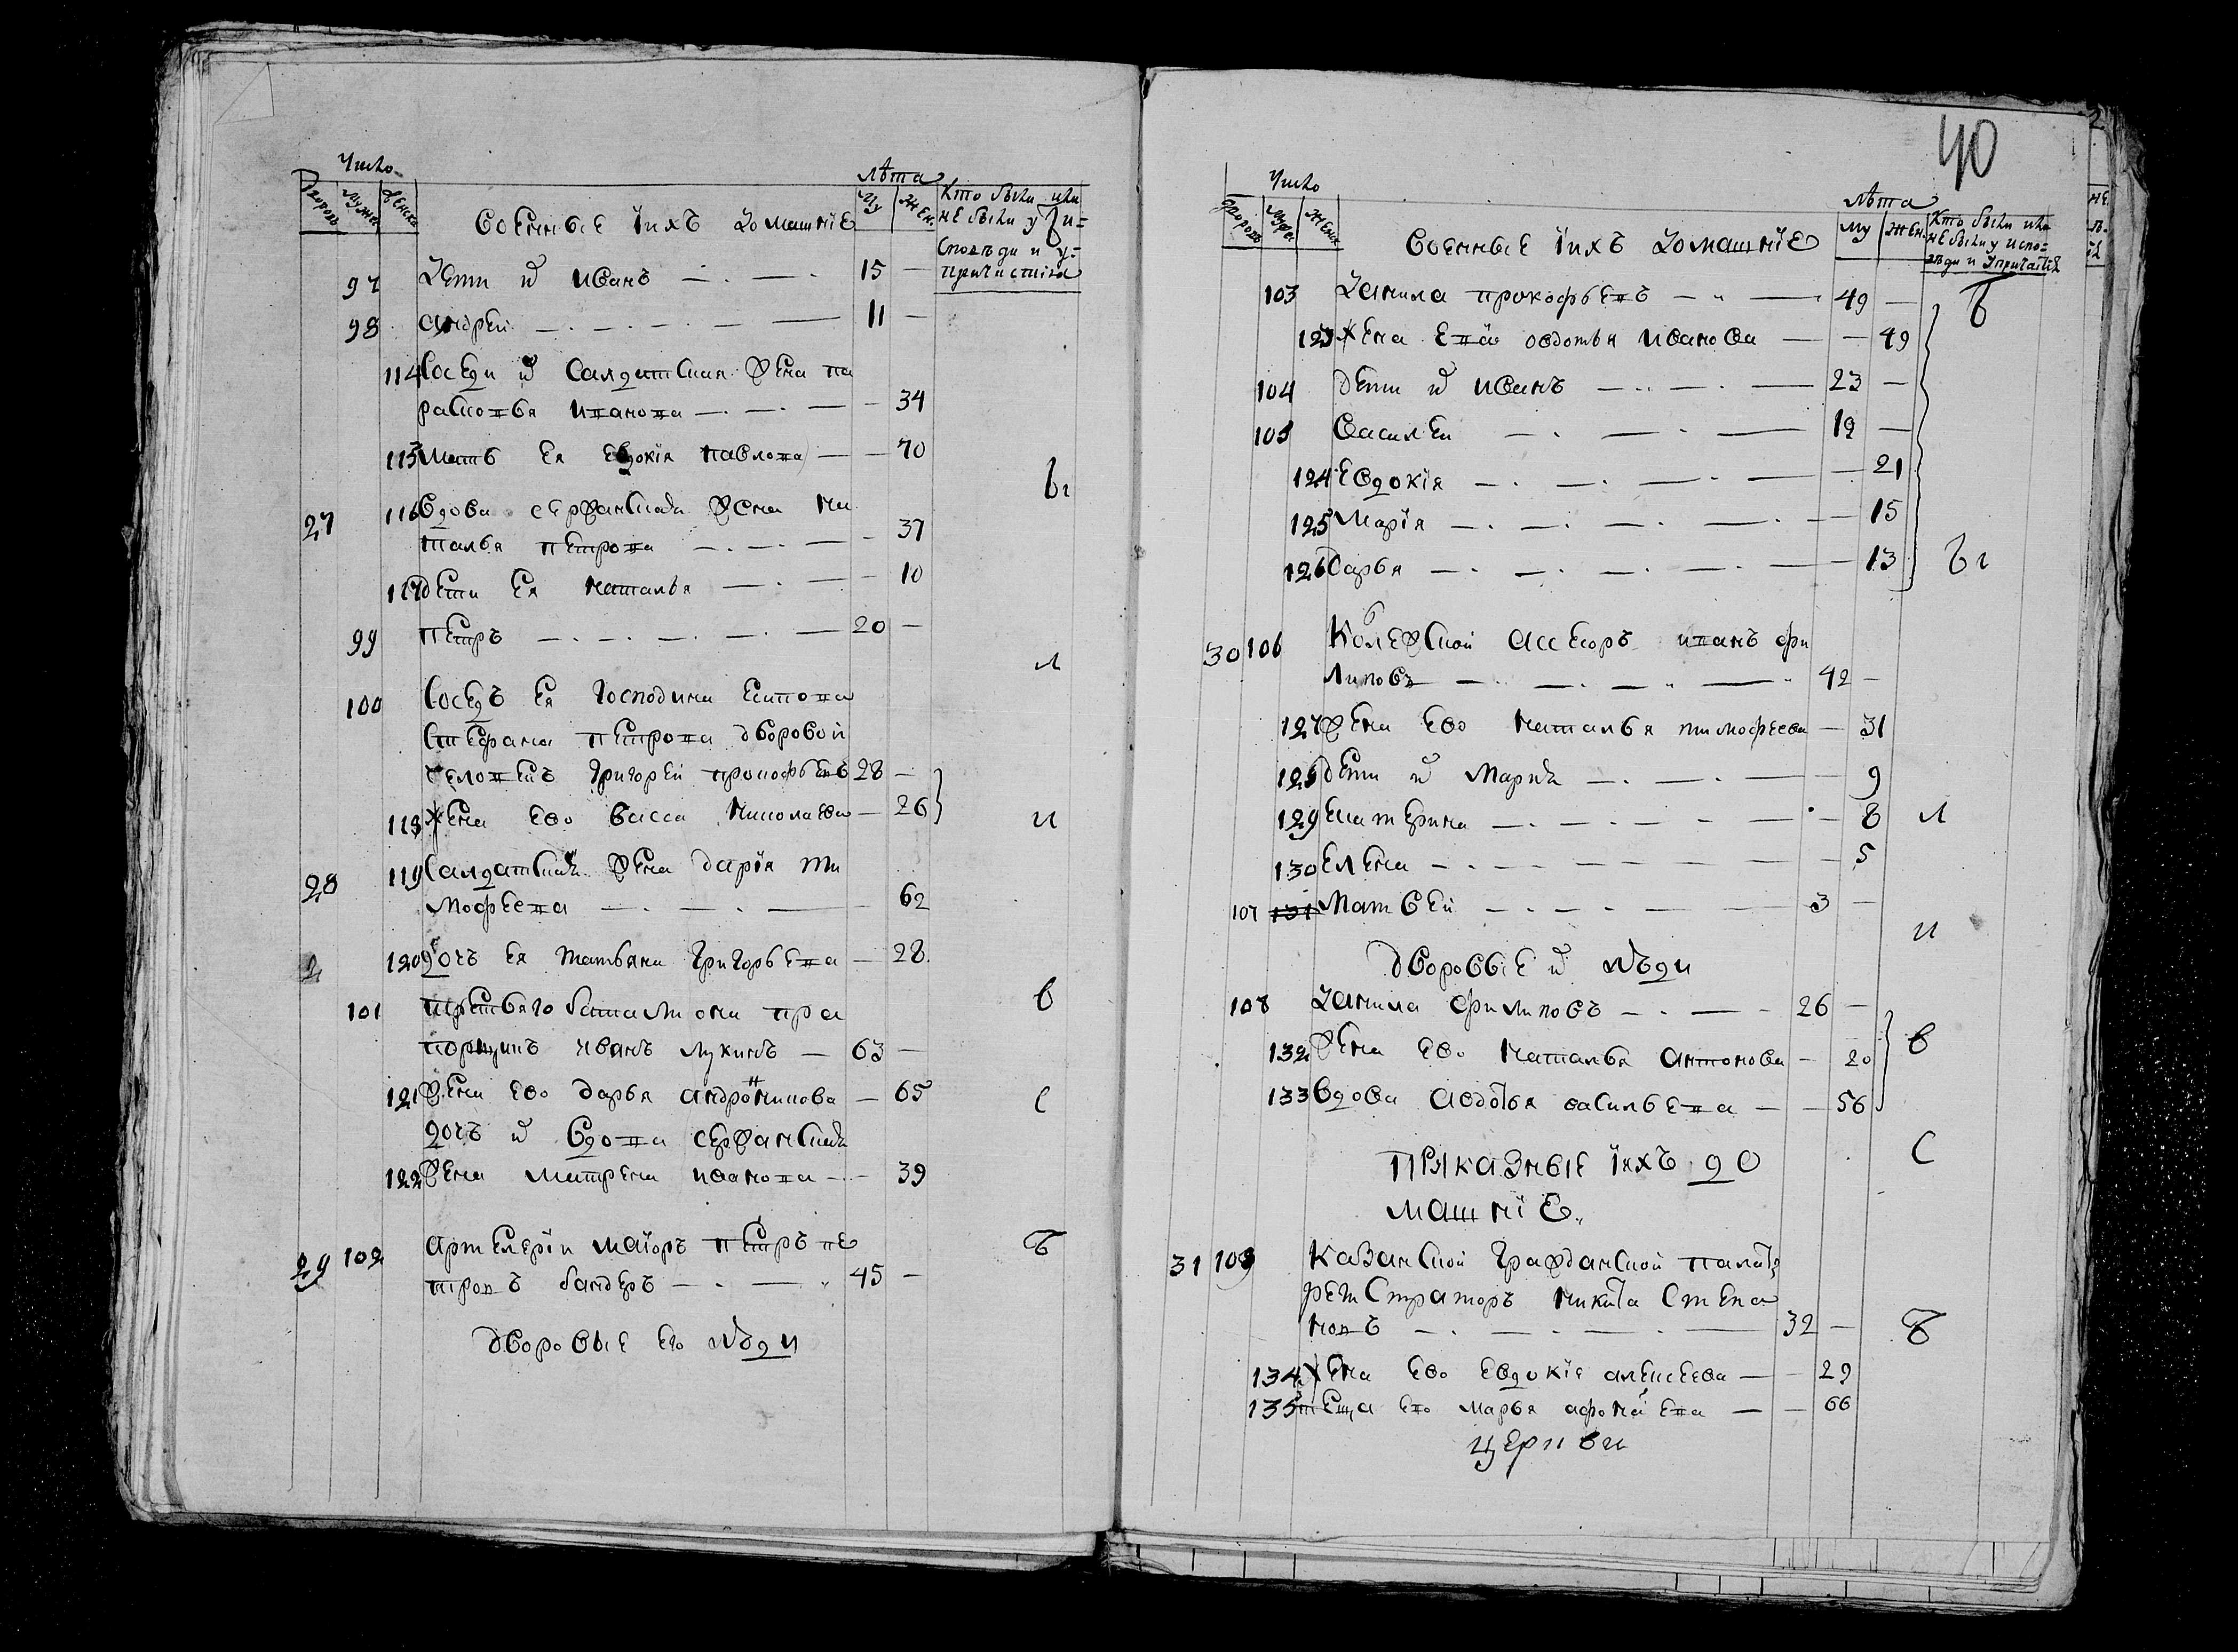 Число
Дворовъ Мужес Женска
Военные їихъ домашнїе
лѣта
Му Жен.
Кто были или
не были у Ди=
споведи и у=
причистия
97 Дети ихъ Иванъ 15 —
98 андрей 11 —
114 Соседи ихъ Салдатская жена па
расковья иванова — 34
115 Мать ея евдокїя павлова — 70
27 116 вдова сержанская жена на
талья петрова — 37
117 дети ея наталья — 10
99 петръ 20 —
100 Соседъ ея господина
стефана петрова дворовой
человекъ григорей прокофьевъ 28 —
118 жена ево васса николаева — 26
28 119 Салдатская жена дарїя ти
мофеева — 62
120 дочь ея татьяна григорьева — 28
101 третьяго баталиона пра
порщикъ иванъ лукинъ — 63 —
121 жена ево дарья андроникова — 65
дочь ихъ вдова сержанская
122 жена матрена иванова — 39
29 102 артилерїи маїоръ петръ пе
тровъ бандеръ 45 —
дворовые его люди
вы
л
и
в
с
Ъ
40
Число
дворовъ Муже Женс
Военные їихъ домашнїе
лѣта
Му Жен.
Кто были или
не были у испо=
веди и у причастїя
103 Данила прокофьевъ 49 —
123 жена ево овдотья иванова — 49
104 дети ихъ иванъ 23 —
105 василеи 19 —
124 евдокїя — 21
125 марїя — 15
126 дарья — 13
30 106 Колежской ассесоръ иванъ фи
липовъ 42 —
127 жена ево наталья тимофеева — 31
128 дети ихъ марья — 9
129 екатерина — 8
130 елена — 5
107 131 матвей 3 —
дворовые ихъ люди
108 данила филиповъ 26 —
132 жена ево наталья антонова — 20
133 вдова авдотья васильева — 56
приказные їихъ до
машнїе
31 109 казанской гражданской палаты
регистраторъ никита степа
новъ 32 —
134 жена ево евдокїя алексеева — 29
135 теща ево марья афонасева — 66
церкви
Б
вы
л
и
в
С
Ъ